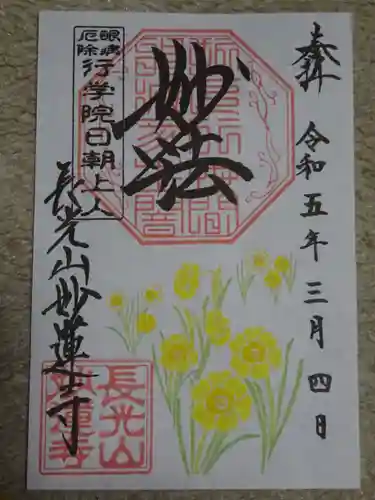 奉拝
令和五年三月四日
妙法
眼病
厄除
行学院日朝上人
長光山妙蓮寺
長光山
妙蓮寺